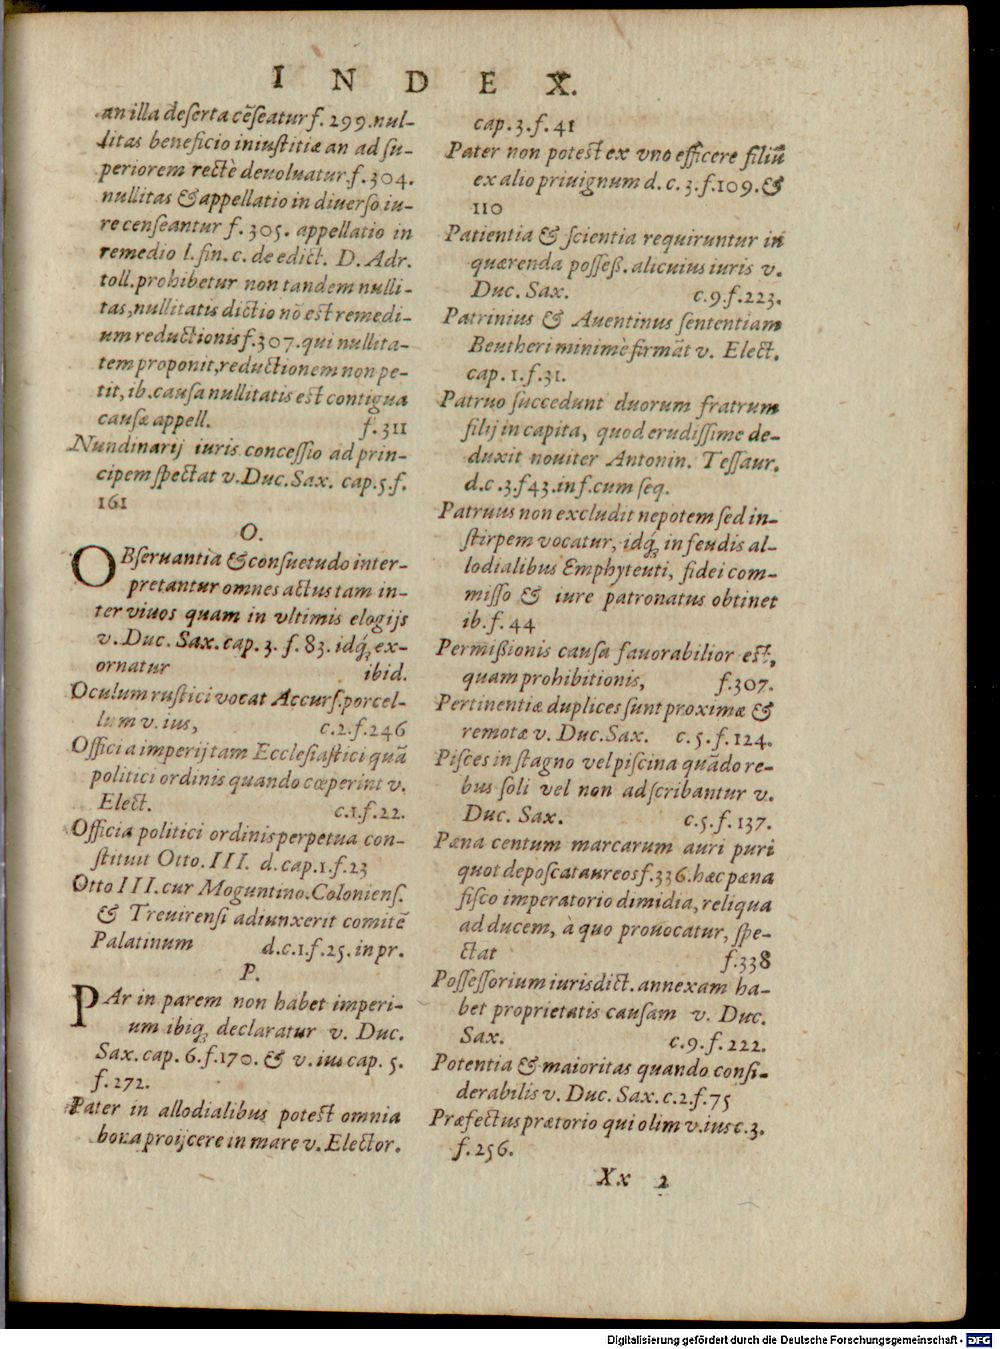 INDEX.
an illa deſerta cẽſeatur f. 299. nul-
litas beneficio iniuſtitiæ an ad ſu-
periorem rectè deuoluatur, f. 304.
nullitas & appellatio in diuerſo iu-
re cenſeantur f. 305. appellatio in
remedio l. fin. c. de edict. D. Adr.
toll. prohibetur non tandem nulli-
tas, nullitatis dictio nõ est remedi-
um reductionis f. 307. qui nullita-
tem proponit, reductionem non pe-
tit, ib. cauſa nullitatis est contigua
cauſæ appell. f. 311
Nundinarij iuris conceſſio ad prin-
cipem ſpectat v. Duc. Sax. cap. 5. f.
161
O.
OBſeruantia & conſuetudo inter-
pretantur omnes actus tam in-
ter viuos quam in vltimis elogijs
v. Duc. Sax. cap. 3. f. 83. idq́; ex-
ornatur ibid.
Oculum ruſtici vocat Accurſ. porcel-
lum v. ius, c. 2. f. 246
Officia imperij tam Eccleſiaſtici quã
politici ordinis quando cœperint v.
Elect. c. 1. f. 22.
Officia politici ordinis perpetua con-
ſtituit Otto. III. d. cap. 1. f. 23
Otto III. cur Moguntino. Colonienſ.
& Treuirenſi adiunxerit comitẽ
Palatinum d. c. 1. f. 25. in pr.
P.
PAr in parem non habet imperi-
um ibiq; declaratur v. Duc.
Sax. cap. 6. f. 170. & v. ius cap. 5.
f. 272.
Pater in allodialibus potest omnia
bona proijcere in mare v. Elector.
cap. 3. f. 41
Pater non potest ex vno efficere filiũ
ex alio priuignum d. c. 3. f. 109. &
110
Patientia & ſcientia requiruntur in
quærenda poſſeß. alicuius iuris v.
Duc. Sax. c. 9. f. 223.
Patrinius & Auentinus ſententiam
Beutheri minimè firmãt v. Elect.
cap. 1. f. 31.
Patruo ſuccedunt duorum fratrum
filij in capita, quod erudiſſime de-
duxit nouiter Antonin. Teſſaur.
d. c. 3. f 43. in f. cum ſeq.
Patruus non excludit nepotem ſed in-
ſtirpem vocatur, idq́; in feudis al-
lodialibus Emphyteuti, fidei com-
miſſo & iure patronatus obtinet
ib. f. 44
Permißionis cauſa fauorabilior est,
quam prohibitionis, f. 307.
Pertinentiæ duplices ſunt proximæ &
remotæ v. Duc. Sax. c. 5. f. 124.
Piſces in ſtagno vel piſcina quãdo re-
bus ſoli vel non adſcribantur v.
Duc. Sax. c. 5. f. 137.
Pæna centum marcarum auri puri
quot depoſcat aureos f. 336. hæc pæna
fiſco imperatorio dimidia, reliqua
ad ducem, à quo prouocatur, ſpe-
ctat f. 338
Poſſeſſorium iurisdict. annexam ha-
bet proprietatis cauſam v. Duc.
Sax. c. 9. f. 222.
Potentia & maioritas quando conſi-
derabilis v. Duc. Sax. c. 2. f. 75
Præfectus prætorio qui olim v. ius c. 3.
f. 256.
Xx 2
Digitalisierung gefördert durch die Deutsche Forschungsgemeinschaft - DFG